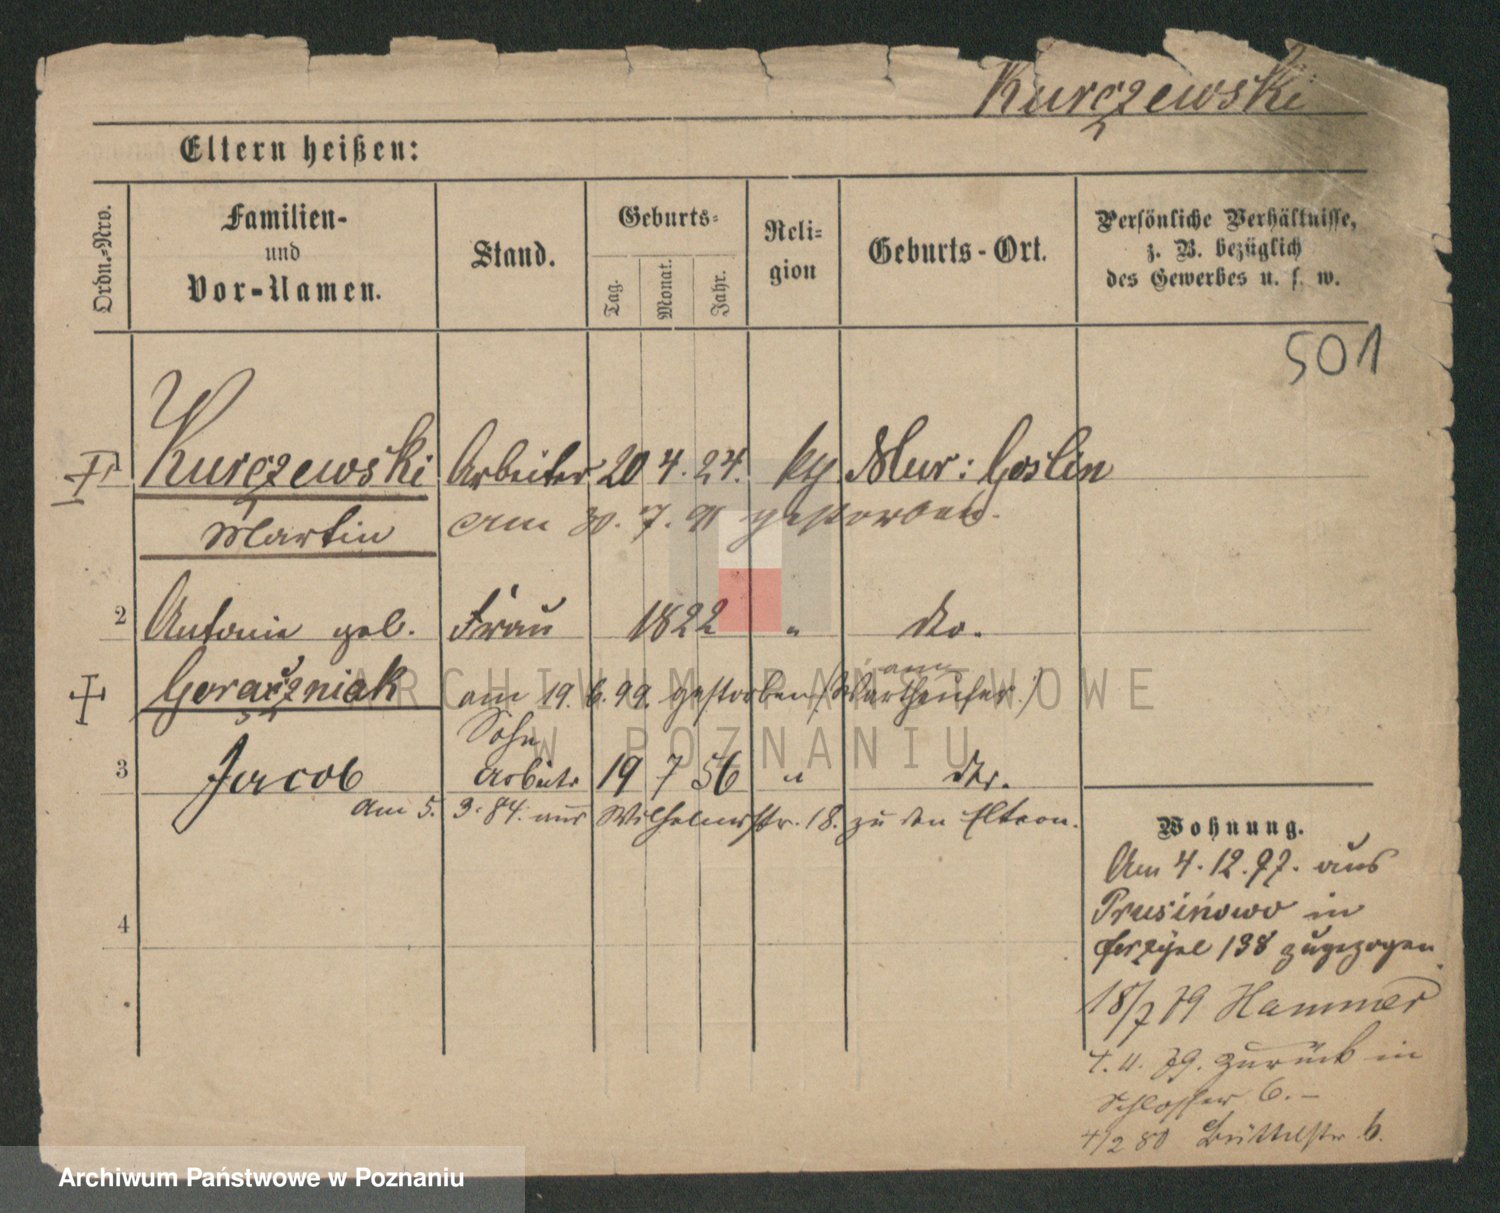 Kurczewski
Eltern heißen:
Ordn.-Nro.
Familien-
und
Vor-Namen.
Stand.
Geburts-
Tag.
Monat.
Jahr.
Reli-
gion
Geburts-Ort.
Persönliche Verhältnisse,
z. B. bezüglich
des Gewerbes u. s. w.
501
Kurczewski Arbeiter 20 4. 24. Mur: Goslin
Martin am 30. 7. gestorben.
2 Antonie geb. Frau 1822 " do.
Goraczniak am 19. 6. 99. gestorben (am Wartheufer.)
Sohn
3 Jacob Arbeiter 19 7 56 " do.
am 5. 3. 84. aus Wilhelmstr. 18. zu den Eltern.
4
Wohnung.
Am 4. 12. 77. aus
Prusinowo in
138 zugezogen
18/7 79 Hammer
4. 11. 79. zurück in
Schlosser 6. –
4/2 80 6.
ARCHIWUM PAŃSTWOWE
W POZNANIU
Archiwum Państwowe w Poznaniu